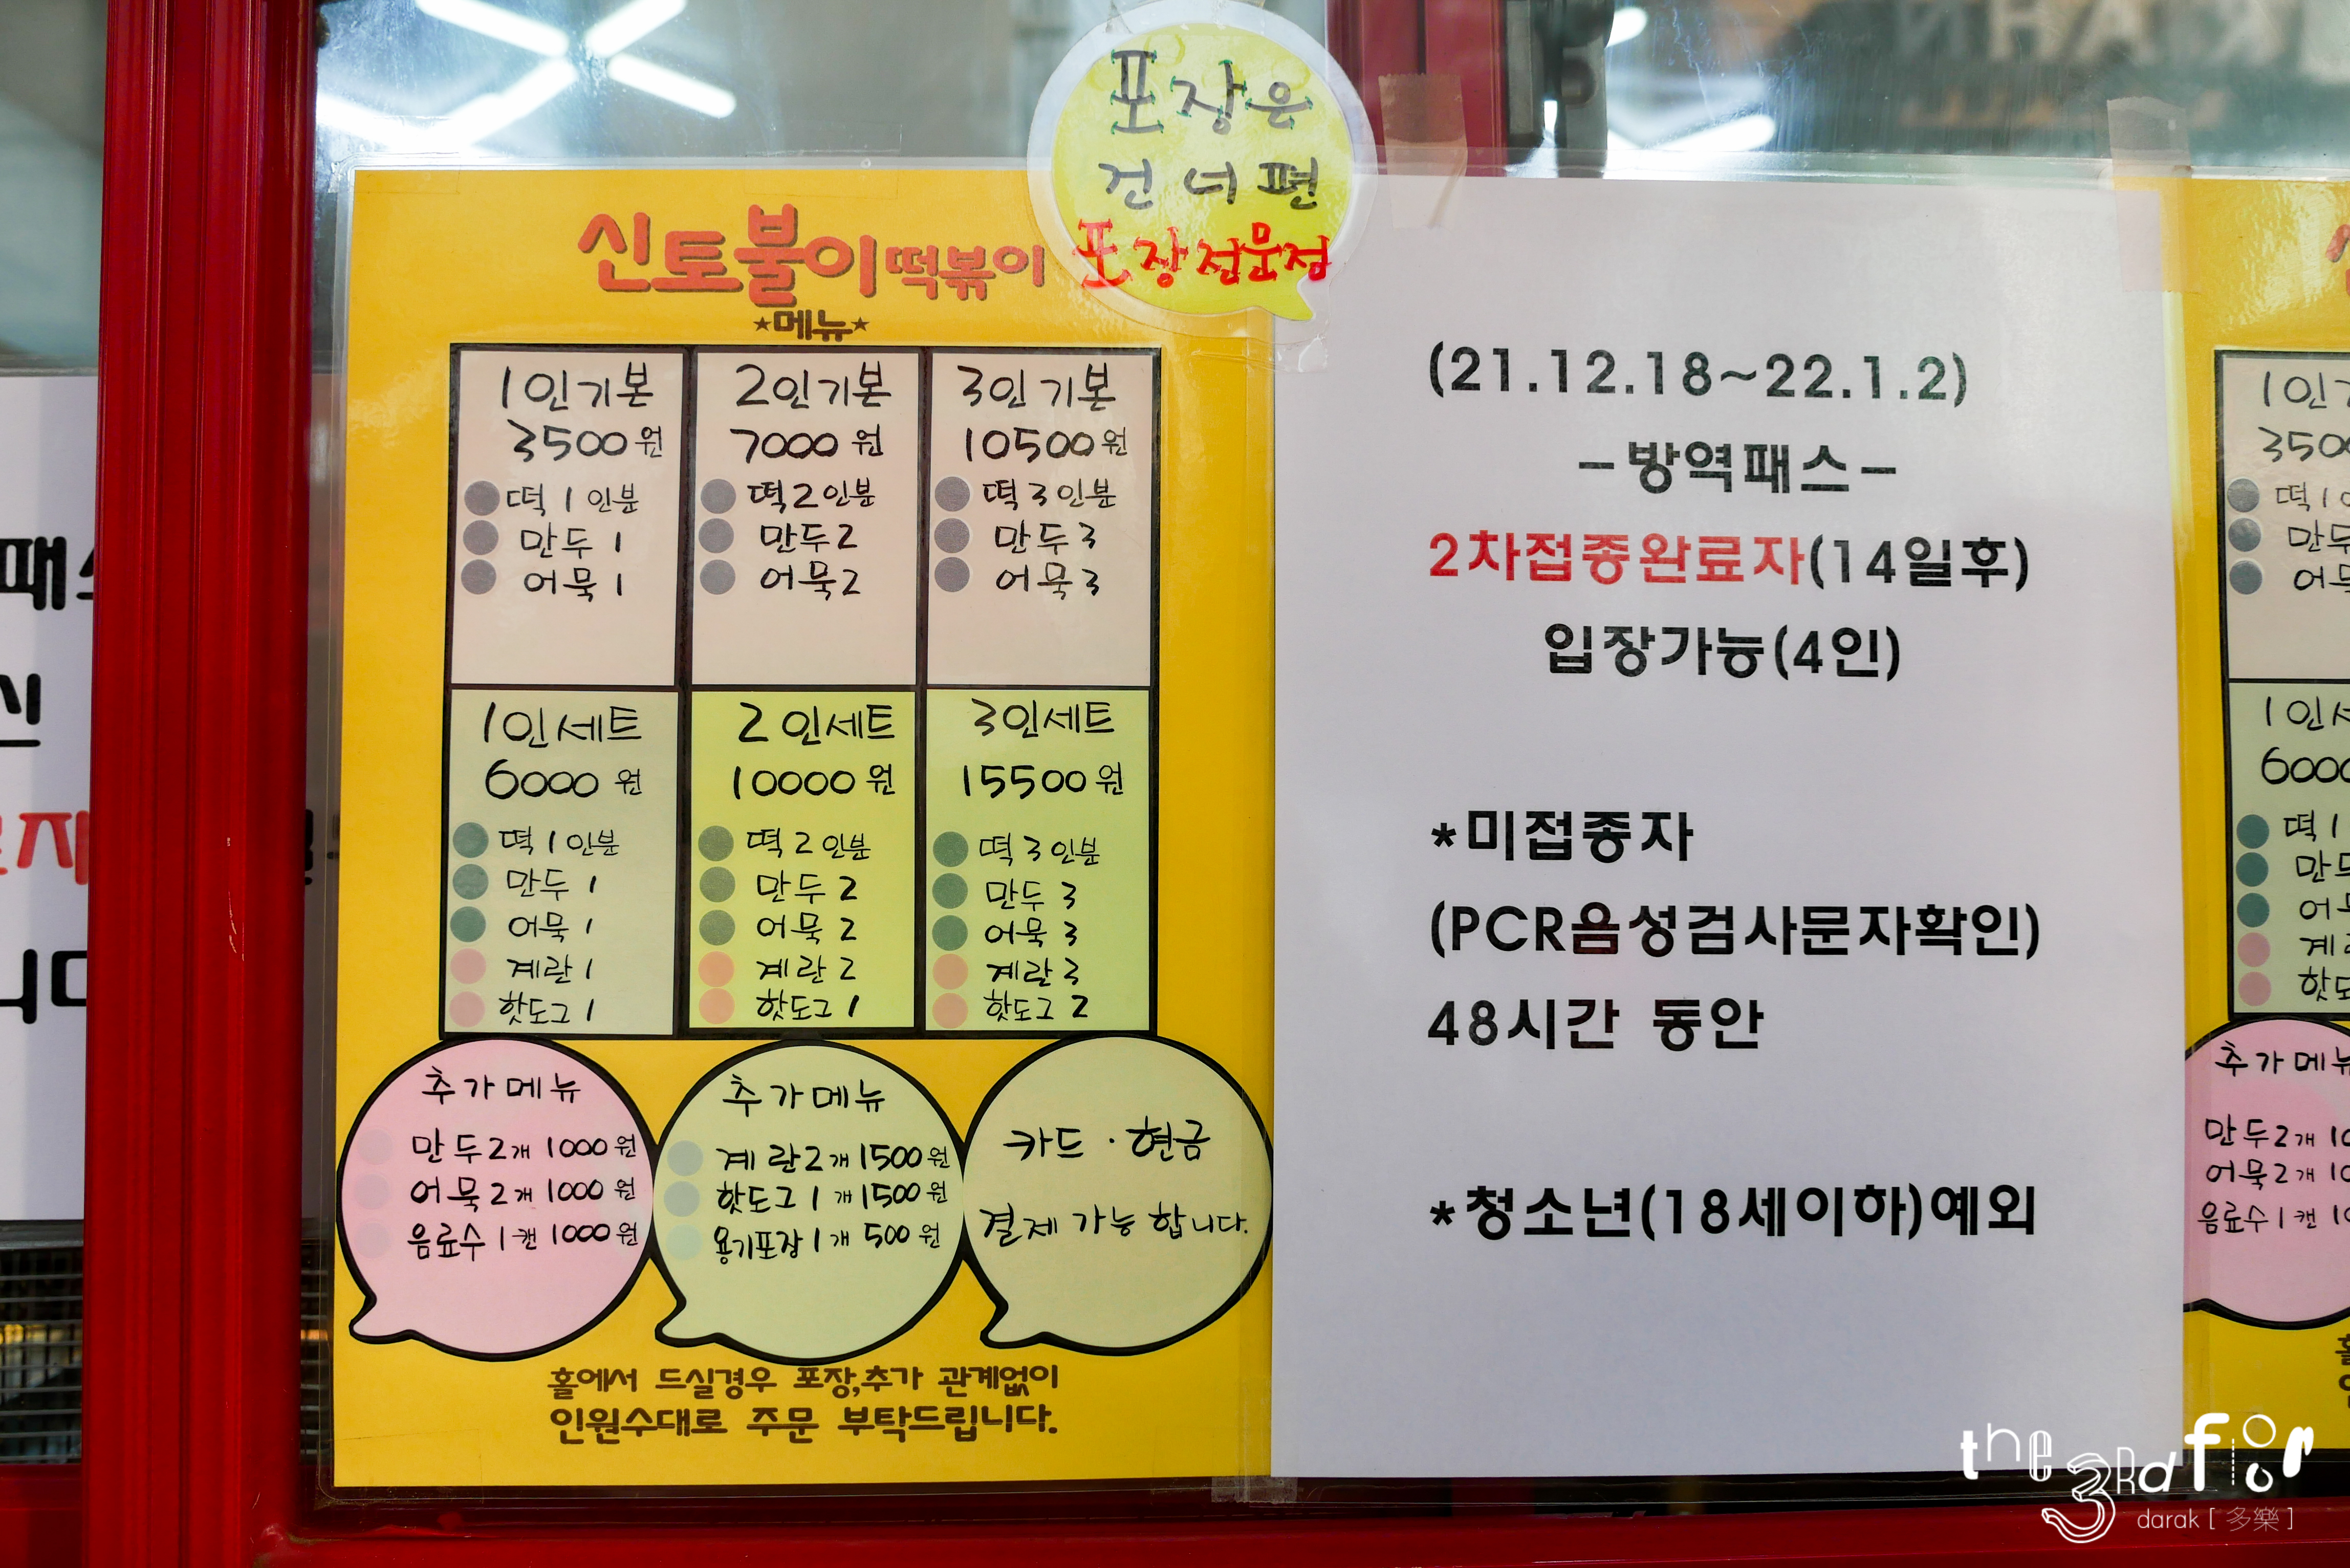 포장은
건너편
포장전문점
신토불이떡볶이
★메뉴★
1인기본
3500원
떡 1인분
만두 1
어묵 1
2인기본
7000원
떡 2인분
만두 2
어묵 2
3인기본
10500원
떡 3인분
만두 3
어묵 3
1인세트
6000원
떡 1인분
만두 1
어묵 1
계란 1
핫도그 1
2인세트
10000원
떡 2인분
만두 2
어묵 2
계란 2
핫도그 1
3인세트
15500원
떡 3인분
만두 3
어묵 3
계란 3
핫도그 2
추가메뉴
만두2개 1000원
어묵2개 1000원
음료수1캔 1000원
추가메뉴
계란2개 1500원
핫도그1개 1500원
용기포장1개 500원
카드·현금
결제 가능 합니다.
홀에서 드실경우 포장,추가 관계없이
인원수대로 주문 부탁드립니다.
(21.12.18~22.1.2)
-방역패스-
2차접종완료자(14일후)
입장가능(4인)
*미접종자
(PCR음성검사문자확인)
48시간 동안
*청소년(18세이하)예외
1인
3500
떡 1
만두
어묵
1인
6000
떡 1
만두
추가메뉴
만두2개
어묵2개
음료수1캔
the 3Rd floor
darak [ 多樂 ]